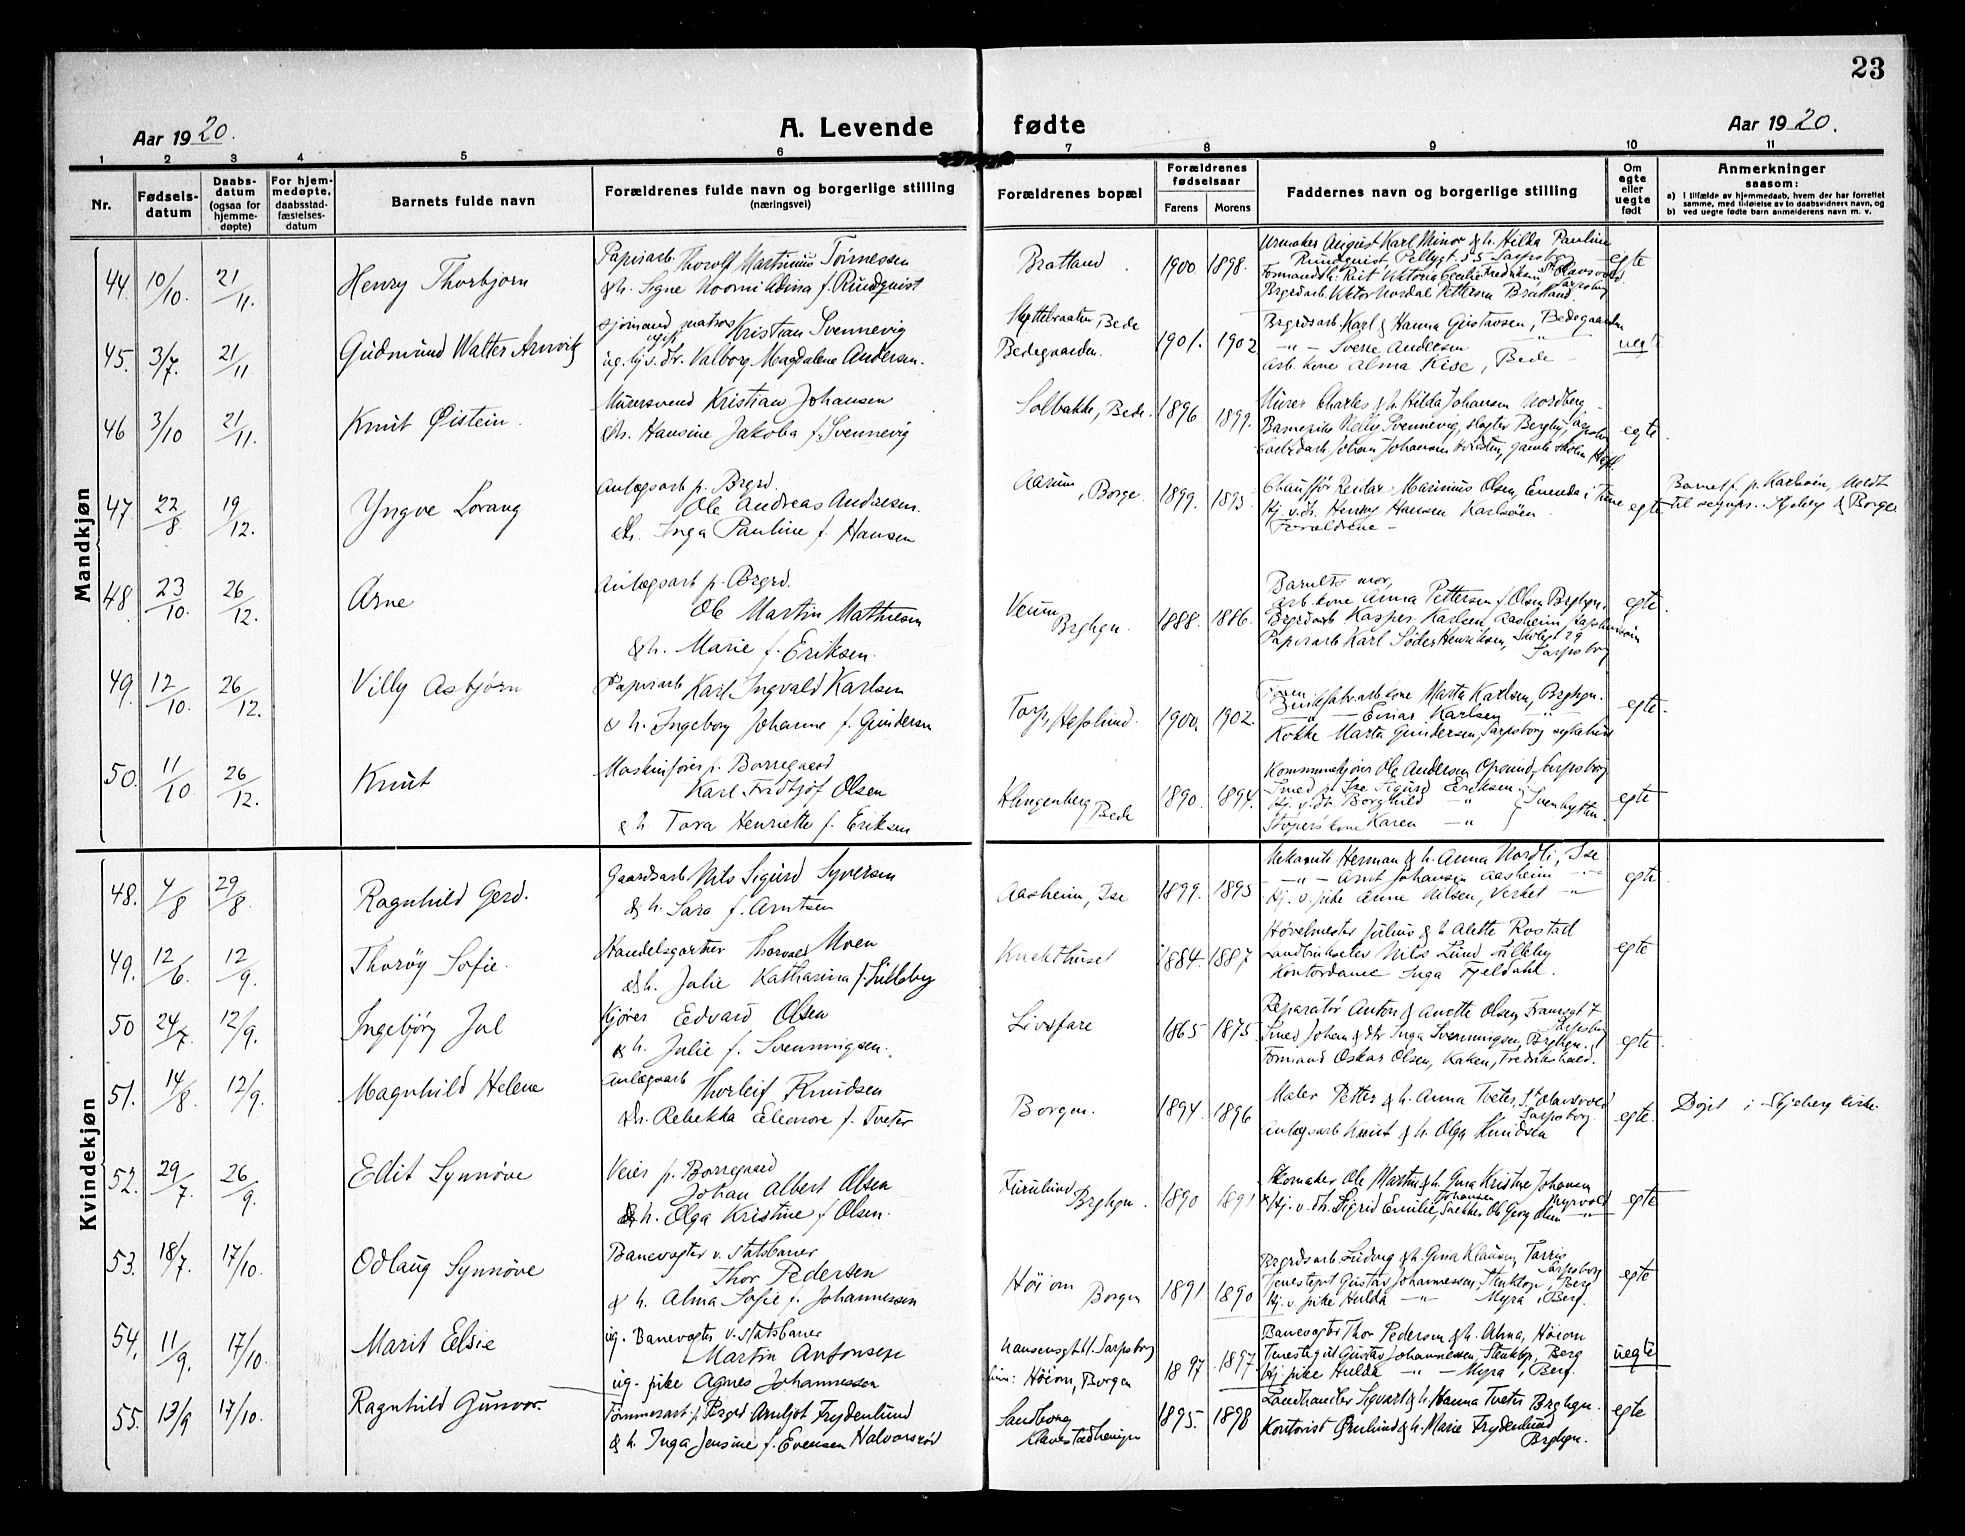 23
Aar 1920.
A. Levende
fødte
Aar 1920.
1 2 3 4 5 6 7 8 9 10 11
Nr.
Fødsels-datum
Daabs-datum (ogsaa for hjemme-døpte)
For hjem-medøpte, daabsstad-fæstelses-datum
Barnets fulde navn
Forældrenes fulde navn og borgerlige stilling
(næringsvei)
Forældrenes bopæl
Forældrenes fødselsaar
Farens
Morens
Faddernes navn og borgerlige stilling
Om egte eller uegte født
Anmerkninger
saasom:
a) i tilfælde av hjemmedaab, hvem der har forrettet samme, med tilføielse av to daabsvidners navn, og
b) ved uegte fødte barn anmelderens navn m. v.
Mandkjøn
44. 10/10. 21/11. Henry Thorbjørn
Papirarb. Thorolf Martinius Tørnessen
& h. Signe Noomi Adina f. Rundquist
Bratland. 1900 1898.
Urmaker August Karl Minor & h. Hilda Pauline
Rundquist Pellygt. 55 Sarpsborg
egte
45. 3/7. 21/11 Gudmund Walter Arnvik
sjømand matros Kristian Svennevig
ug. hj. v. dr. Valborg Magdalene Andersen.
Bede
Bedegaarden. 1901. 1902
Brgrdsarb. Karl & Hanna Gustavsen, Bedegaarden
-"- Sverre Andersen "
Arb. kone Alma Kise, Bede
uegt
46 3/10 21/11. Knut Øistein.
Murersvend Kristian Johansen
& h. Hansine Jakoba f. Svennevig
Solbakke, Bede. 1896 1899.
Murer Charles & h. Hilda Johansen Nordberg
Barnepike Nelly Svennevig, slagter Bergby, Sarpsbg
egte.
47. 22/8 19/12. Yngve Lorang
Anlægsarb p. Brgrd.
Ole Andreas Andresen.
& h. Inga Pauline f. Hansen
Aarum, Borge. 1899. 1895.
Chauffør Reidar Marinius Olsen, Enenda i Tune
Hj. v. dr. Henny Hansen Karlsøen.
Forældrene -
egte
til sognepr. Skjeberg & Borge
48. 23/10. 26/12. Arne
Anlægsarb p. Brgrd.
Ole Martin Mathiesen
& h. Marie f. Eriksen.
Veum Brghgn. 1888. 1886.
Barnets mor,
Arb. kone Anna Pettersen f. Olsen Brghgn.
Brgrdarb Kasper Karlsen, Aasheim
Papirarb Karl Søder Henriksen, Skolegt 29
Sarpsborg
egte.
49. 12/10. 26/12. Villy Asbjørn
Papirarb Karl Ingvald Karlsen
& h. Ingeborg Johanne f. Gundersen
Torp, Hafslund. 1900. 1902.
Zinkfabr. arb. kone Marta Karlsen, Brghgn.
-"- Einar Karlsen "
Kokke Marta Gundersen, Sarpsborg sykehus
egte.
50. 11/10 26/12. Knut
Maskinfører p. Borregaard
Karl Fridtjof Olsen
& h Tora Henriette f. Eriksen
Klingenberg Bede 1890. 1894.
Kommunekjører Ole Andersen Opsund, Sarpsborg
Smed p. Ise Sigurd Eriksen
Hj. v. dr. Borghild -"-
Støpers kone Karen -"-
egte
Kvindekjøn
48. 4/8 29/8. Ragnhild Gerd.
Gaardsarb Nils Sigurd Syversen
& h. Sara f. Arntsen
Aasheim, Ise 1899. 1895
Herman & h. Anna Nordli, Ise
-"- Arnt Johansen Aasheim -"-
Hj. v. pike Anne Nilsen, Verket -"-
egte.
49. 12/6. 12/9. Thorøy Sofie.
Handelsgartner Thorvald Moen
& h. Julie Katharina f. Lilleby
Knekthuset 1884. 1887
Høvelmester Julius & h Alette Rostad
Landbrukselev Nils Lund Lilleby
Kontordame Inga Fjeldahl.
egte
50 24/7. 12/9. Ingebjörg Jul
Kjører Edvard Olsen
& h. Julie f. Svenningsen.
Livsfare 1865 1875
Reparatør Anton & Anette Olsen, Framgt 7
Sarpsborg
Smed Johan & dtr Inga Svenningsen, Brghgn.
Formand Oskar Olsen, Kaken, Fredrikshald.
egte.
51. 14/8. 12/9. Magnhild Helene
Anlægsarb Thorleif Knudsen
& h. Rebekka Eleonore f. Tveter
Borgen. 1894. 1896
Maler Petter & h. Anna Tveter, St. Olavsvold
Sarpsborg
Anlægsarb Knut & h. Olga Knudsen
egte.
Døpt i Skjeberg kirke.
52. 29/7. 26/9. Edit Synnöve
Veier p. Borregaard
Johan Albert Olsen
& h. Olga Kristine f Olsen.
Furulund Brghgn. 1890 1891
Skomaker Ole Martin & h. Gina Kristine Johansen
Hj. v. dr. Sigrid Emilie Johansen, Myrvold
egte
53. 18/7. 17/10. Odlaug Synnöve
Banevogter v. Statsbaner
Thor Pedersen
& h. Alma Sofie f. Johannessen
Höiom Borgen 1891 1890
Brgrdsarb Ludvig & h. Gina Klausen, Torris
Sarpsborg
Tenestegut Gustav Johannessen, Stenktop, Berg
Hj. v. pike Hulda -"- Myra, i Berg.
egte
54. 11/9. 17/10. Marit Elsie
ug. Banevogter v. Statsbaner
Martin Antonsen
ug. pike Agnes Johannessen
Hansensgt 11. Sarpsborg
Höiom, Borgen 1897 1897.
Banevogter Thor Pedersen & h. Alma, Höiom
Tenestegut Gustav Johannessen Stenktop, Berg
Hj. pike Hulda -"- Myra, i Berg.
uegte
55. 13/9 17/10. Ragnhild Gunvor.
Tømmerarb. p. Brgrd Arnljot Frydenlund
& h. Inga Jensine f. Evensen Halvorsrød
Sandberg
Klavestadhaugen 1895. 1898
Landhandler Sigvart & h. Hanna Tveter Brghgn.
Kontorist Ørnlund & h. Marie Frydenlund
Brghgn.
egte